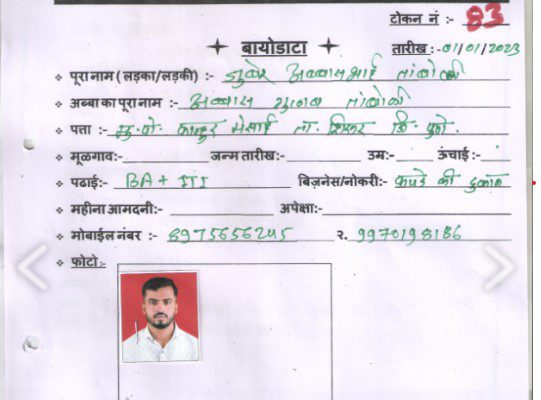 टोकन नं :- 83
बायोडाटा
तारीख :- 01/01/2023
पूरा नाम (लड़का/लड़की) :- जुबेर अब्बासभाई तांबोळी
अब्बा का पूरा नाम :- अब्बास गुलाब तांबोळी
पता :- मु.पो. कान्हुर मेसाई ता. शिरूर जि. पुणे.
मूळगाव:- जन्म तारीख:- उम्र:- ऊंचाई :-
पढाई:- BA + ITI बिज़नेस/नोकरी:- कपडे की दुकान
महीना आमदनी:- अपेक्षा:-
मोबाईल नंबर :- 8975656245 २. 9970198186
फोटो:-